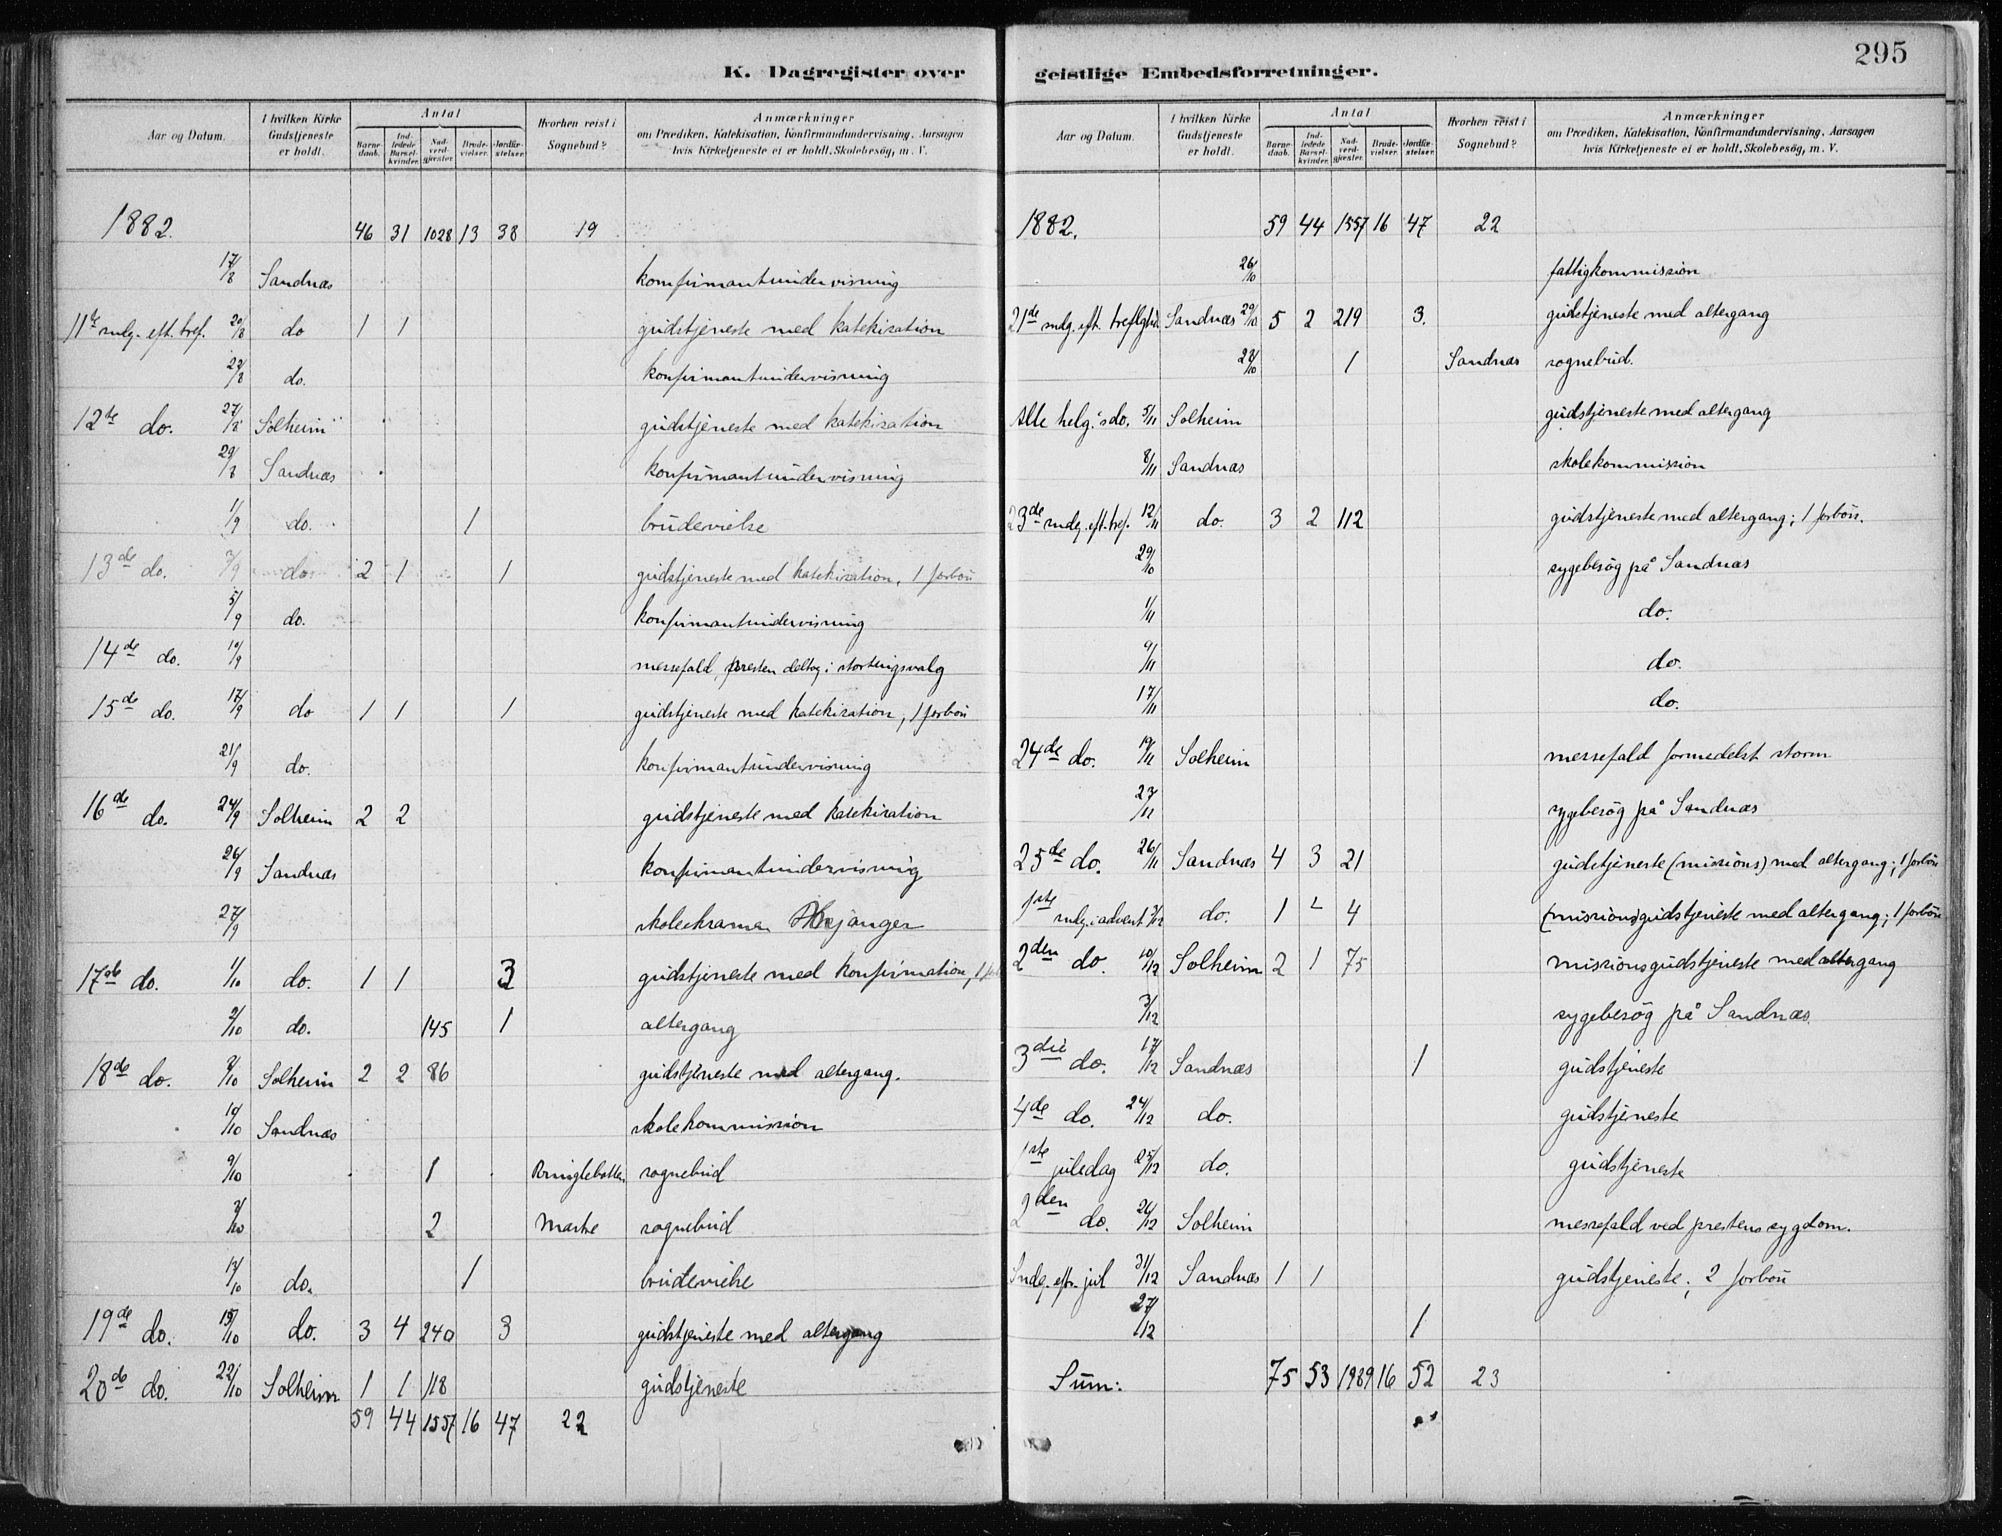 295
K. Dagregister over
geistlige Embedsforretninger.
Aar og Datum.
I hvilken Kirke Gudstjeneste er holdt.
Antal
Barne-daab.
Ind-ledede Barsel-kvinder.
Nad-verd-gjester.
Brude-vielser.
Jordfæ-stelser.
Hvorhen reist i Sognebud?
Anmærkninger
om Prædiken, Katekisation, Konfirmandundervisning, Aarsagen
hvis Kirketjeneste ei er holdt, Skolebesøg, m. V.
1882. 46 31 1028 13 38 19
17/8 Sandnæs konfirmantundervisning
11te sndg. eft. tref. 20/8 do 1 1 gudstjeneste med katekisation
22/8 do. konfirmantundervisning
12te do. 27/8 Solheim gudstjeneste med katekisation
29/8 Sandnæs konfirmantundervisning
1/9 do. 1 brudevielse
13de do. 3/9 do 2 1 1 gudstjeneste med katekisation, 1 forbön
5/9 do. konfirmantundervisning
14de do. 10/9 messefald, presten deltog i stortingsvalg
15de do. 17/9 do 1 1 1 gudstjeneste med katekisation, 1 forbön
21/9 do. konfirmantundervisning
16de do. 24/9 Solheim 2 2 gudstjeneste med katekisation
26/9 Sandnæs konfirmantundervisning
27/9 skoleeksamen
17de do. 1/10 do. 1 1 3 gudstjeneste med konfirmation, 1 for
2/10 do. 145 1 altergang
18de do. 8/10 Solheim 2 2 86 gudstjeneste med altergang.
10/10 Sandnæs skolekommission
9/10 1 Bringlebotten sognebud
3/10 2 Maske sognebud
13/10 do. 1 brudevielse
19de do. 15/10 do. 3 4 240 3 gudstjeneste med altergang
20de do. 22/10 Solheim 1 1 118 gudstjeneste
59 44 1557 16 47 22
Aar og Datum.
I hvilken Kirke Gudstjeneste er holdt.
Antal
Barne-daab.
Ind-ledede Barsel-kvinder.
Nad-verd-gjester.
Brude-vielser.
Jordfæ-stelser.
Hvorhen reist i Sognebud?
Anmærkninger
om Prædiken, Katekisation, Konfirmandundervisning, Aarsagen
hvis Kirketjeneste ei er holdt, Skolebesøg, m. V.
1882. 59 44 1557 16 47 22
26/10 fattigkommission
21de sndg. eft. treflght. Sandnæs 29/10 5 2 219 3. gudstjeneste med altergang
1 Sandnæs sognebud.
Alle helg.'s do. 5/11 Solheim gudstjeneste med altergang
8/11 Sandnæs skolekommission
23de sndg. eft. tref. 12/11 do. 3 2 112 gudstjeneste med altergang; 1 forbön.
29/10 sygebesög på Sandnæs
1/11 do.
9/11 do.
17/11 do.
24de do. 19/11 Solheim messefald formedelst storm
23/11 sygebesög på Sandnæs
25de do. 26/11 Sandnæs 4 3 21 gudstjeneste (missions) med altergang; 1 forbön
1ste sndg. i advent 3/12 do. 1 4 (missions)gudstjeneste med altergang; 1 forbön
2den do. 10/12 Solheim 2 1 75 missionsgudstjeneste med altergang
3/12 sygebesög på Sandnæs.
3die do. 17/12 Sandnæs 1 gudstjeneste
4de do. 24/12 do. gudstjeneste
1ste juledag 25/12 do. gudstjeneste
2den do. 26/12 Solheim messefald ved prestens sygdom.
Sndg. eftr. jul 31/12 Sandnæs 1 1 gudstjeneste; 2 forbön
27/12 1
Sum: 75 53 1989 16 52 23